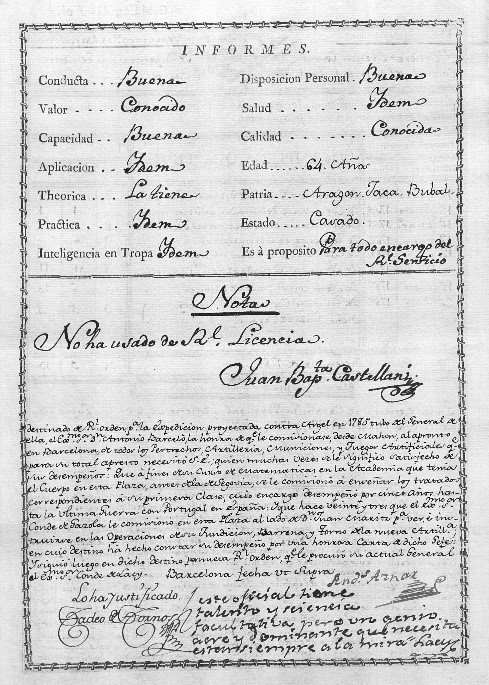 INFORMES.
Conducta . . . Buena
Valor . . . . Conocido
Capacidad . . Buena
Aplicacion . . Ydem
Theorica . . . La tiene
Practica . . . Ydem
Inteligencia en Tropa Ydem
Disposicion Personal . Buena
Salud . . . . Ydem
Calidad . . . . Conocida
Edad . . . . . 64. Añs
Patria . . . . Aragon. Jaca. Bubal.
Estado . . . . Casado.
Es à proposito Para todo encargo del
Rl. Servicio
Nota
No ha usado de Rl. Licencia.
Juan Bapta. Castellani
destinado de Rl orden pa. la expedicion proyectada contra Argel en 1785 tubo del General de
ella, el Antonio Barceló la honra de qe. le comisionase, desde Mahon, al apronto
en Barcelona de todos los Pertrechos, Artilleria, Municiones, y fuegos Artificiales qe.
para su total apresto necesitó S. E. quien muchas veces le Significó Satisfecho de
su desempeño: Que à fines de su Curso de Matematicas en la Academia que tenia
el Cuerpo en esta Plaza, antes de la de Segovia, se le comisionó à enseñar los tratados
correspondientes à su primera Clase, cuio encargo desempeñó por cinco Años, has-
ta la Ultima Guerra con Portugal en España: Que hace veinte y tres que el
Conde de Gazola le comisionó en esta Plaza al lado de Dn. Juan Maritz pa. ver, é ins-
truirse en las Operaciones de su Fundicion, Barrena, y Torno de la nueva Artilla.
en cuio destino ha hecho constar su desempeño por una honrosa Carta de dicho Gefe:
Y siguió luego en dicho destino por nueva Rl. Orden, qe. le procuró su actual General
el Conde de Lacy. Barcelona fecha ut Supra.
Lo ha Justificado
Tadeo
Andrs. Aznar
este official tiene
talento y sciencia
facultativa, pero un genio
acre y dominante que necesita
estar siempre a la mira. Lacy